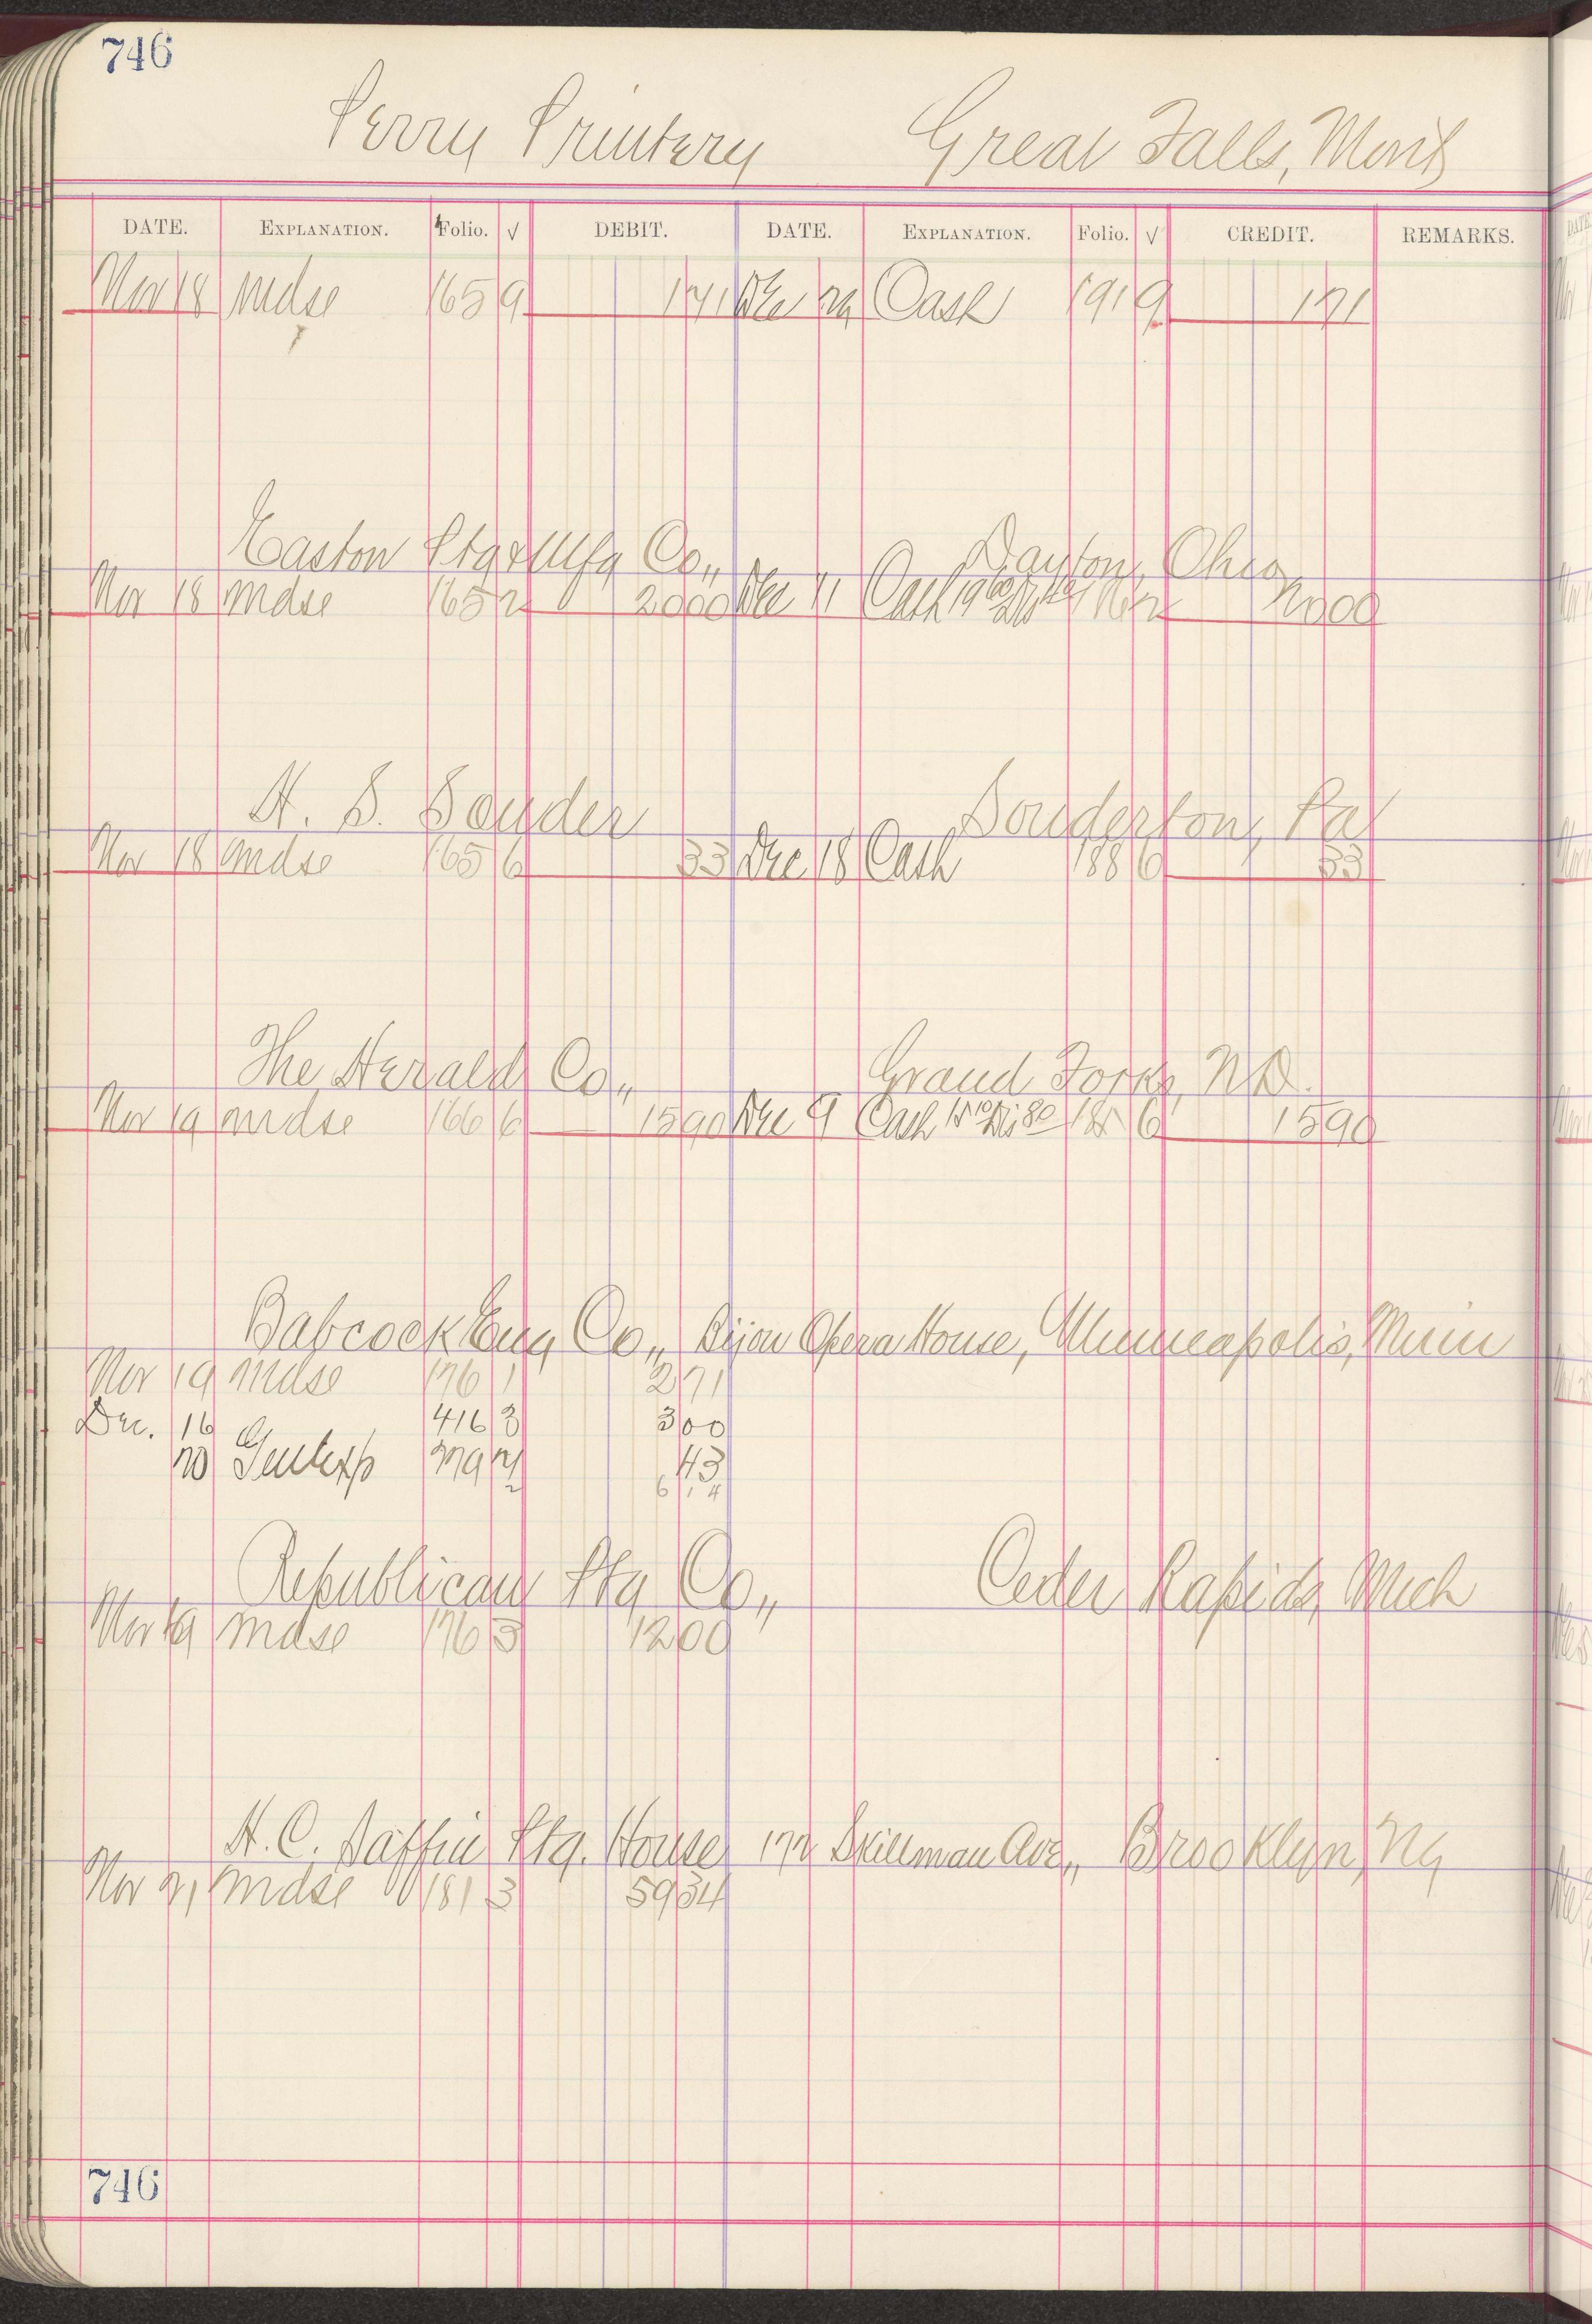 746
Perry Printery Great Falls, Mont
DATE. EXPLANATION. Folio. √ DEBIT. DATE. EXPLANATION. Folio. √ CREDIT. REMARKS.
Nov 18 mdse 165 9 171 Dec Cash 191 9 171
Easton Ptg & Mfg Co,, Dayton, Ohio
Nov 18 mdse 165 2 2000 Dec 11 Cash 2000
H. S. Souder Souderton, Pa
Nov 18 mdse 165 6 33 Dec 18 Cash 188 6 33
The Herald Co,, Grand Forks, N.D.
Nov 19 mdse 166 6 1590 Dec 9 Cash 6 1590
Babcock Eng Co,, Bijou Opera House, Minneapolis, Minn
Nov 19 mdse 176 1 271
Dec. 16 416 3 300
20 43
6 14
Republican Ptg Co,, Ceder Rapids, Mich
Nov 19 mdse 176 3 1200
H. C. Saffin Ptg. House 172 Skillman Ave,, Brooklyn, Ny
Nov 21 mdse 181 3 5934
746